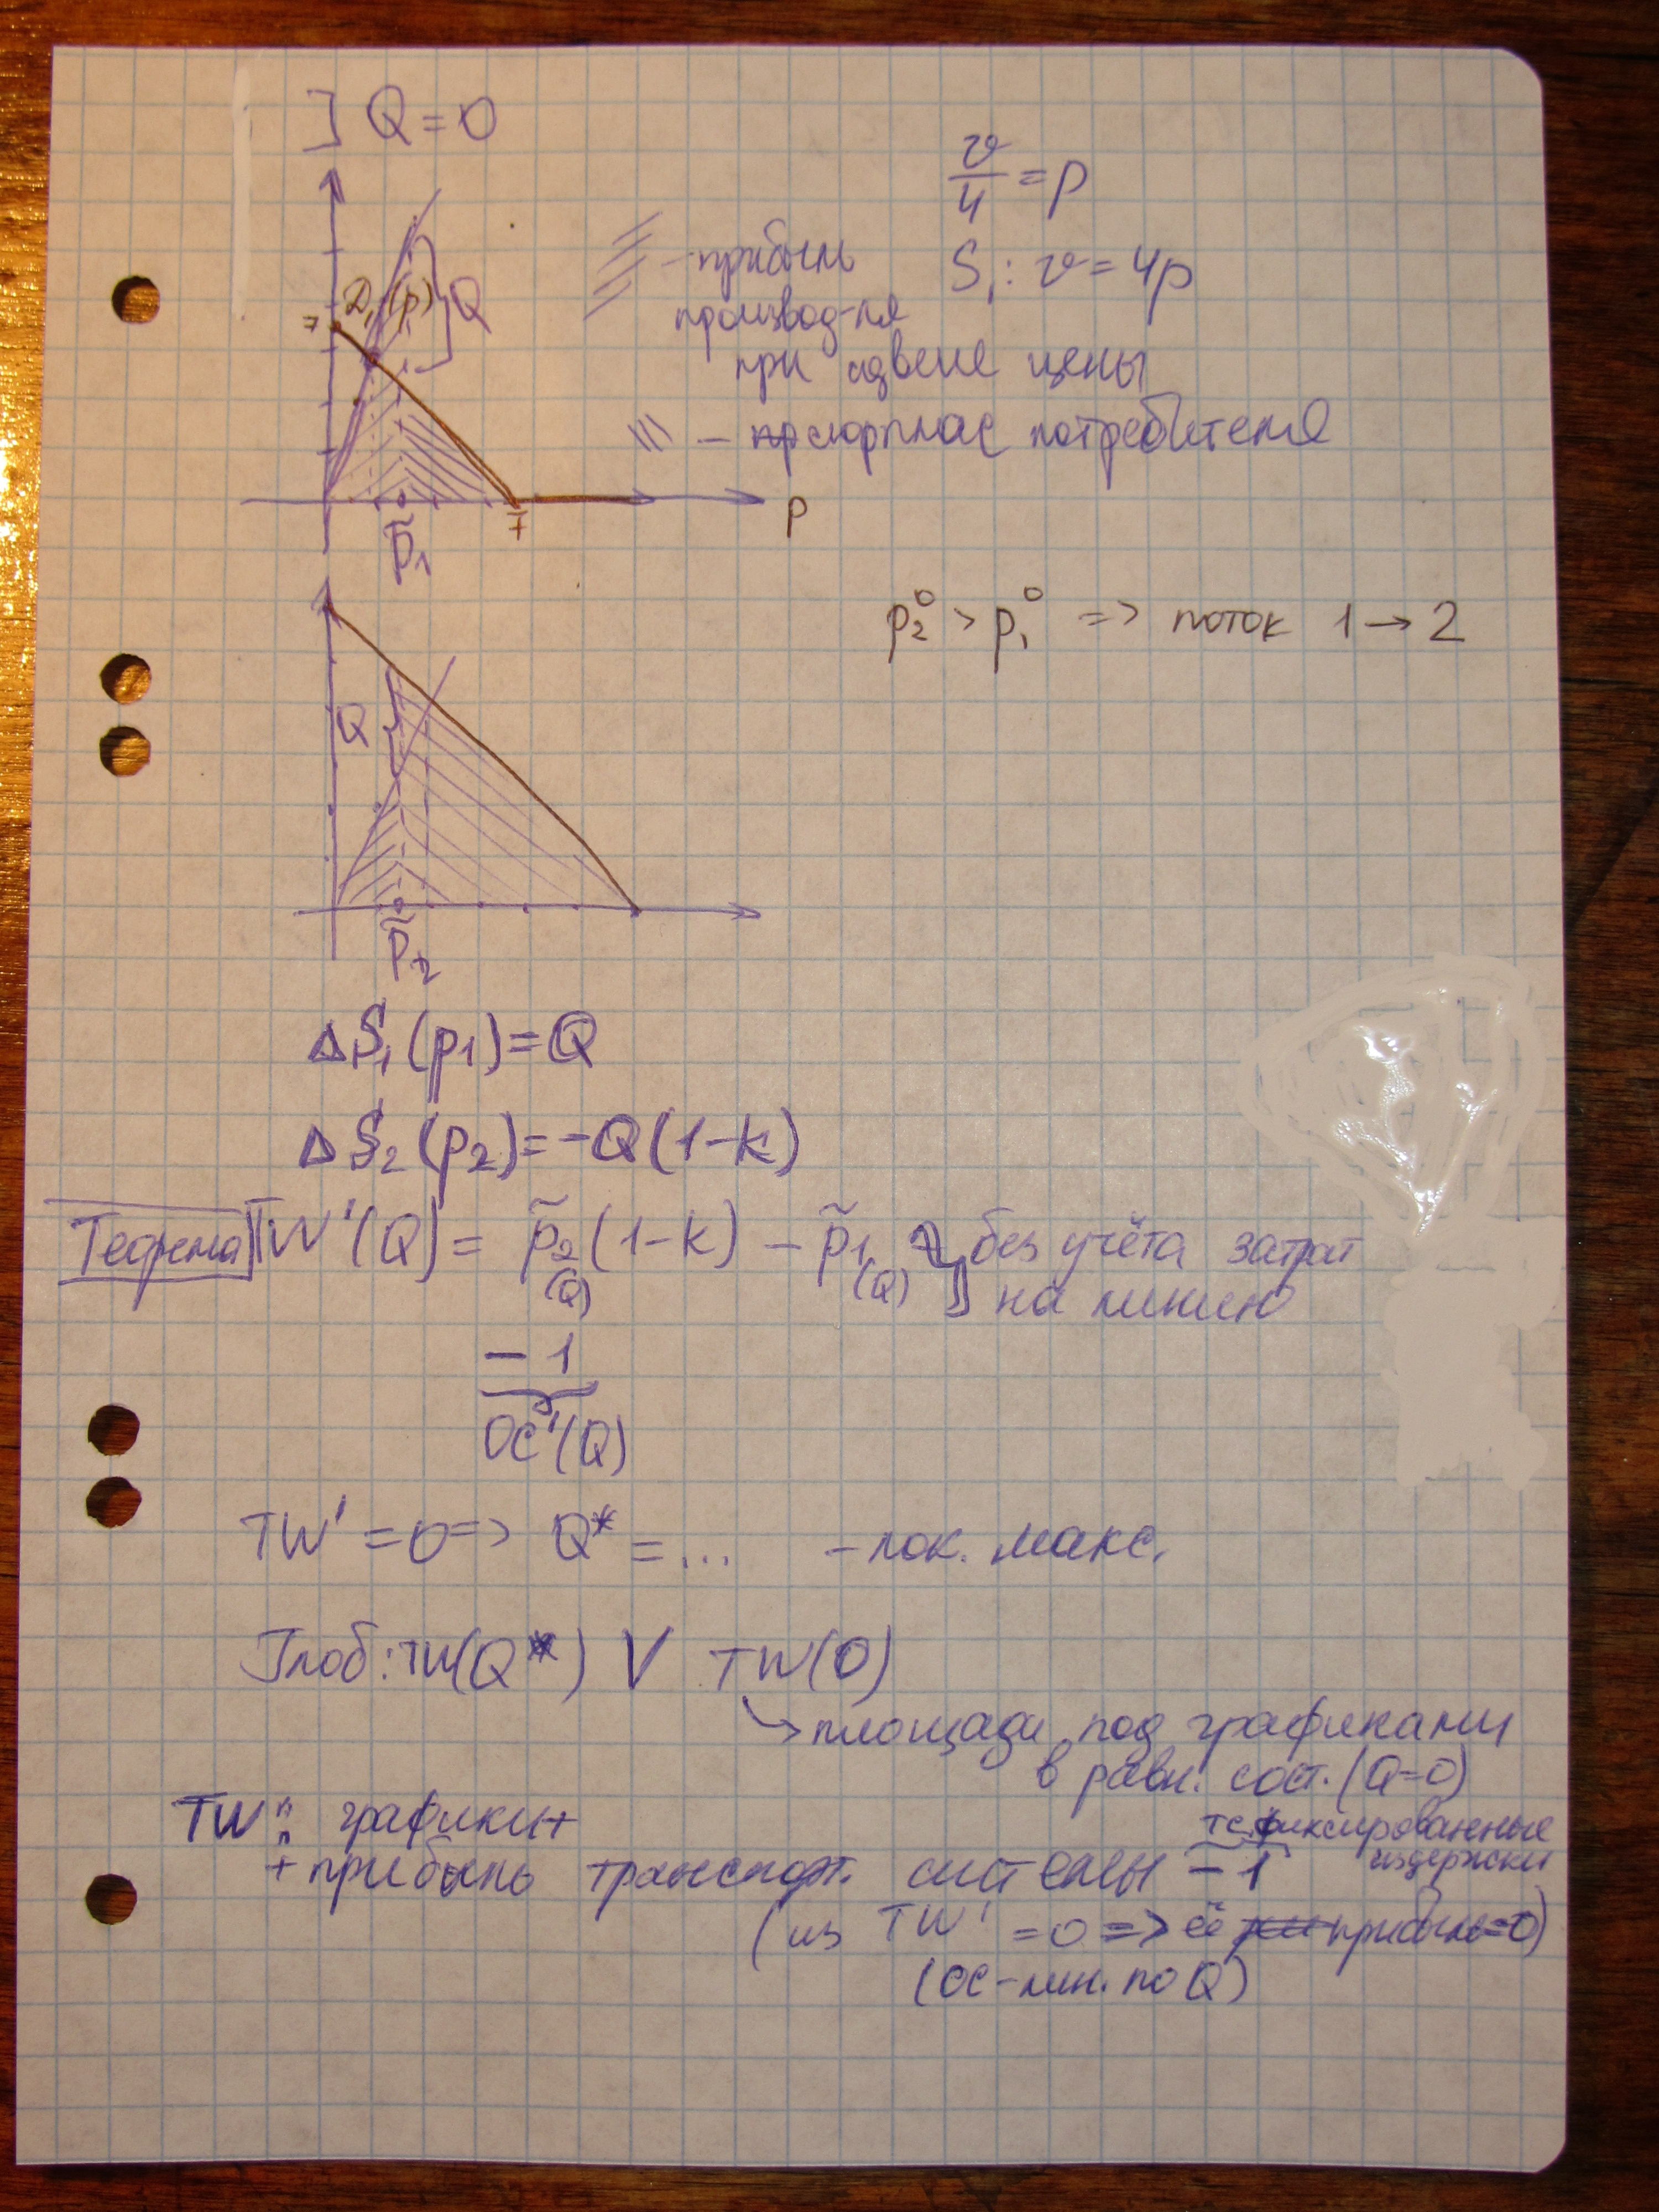 ] Q = 0
v/4 = p
S₁: v = 4p
D₁(p)
Q
7
7
p̃₁
p
- прибыль
производ-ля
при сдвиге цены
- сюрплюс потребителя
p₂⁰ > p₁⁰ => поток 1→2
Q
p̃₂
ΔS₁(p₁) = Q
ΔS₂(p₂) = -Q(1-k)
Теорема TW'(Q) = p̃₂(Q)(1-k) - p̃₁(Q) } без учёта затрат
на линию
- 1
ОС'(Q)
TW' = 0 => Q* = ... - лок. макс.
Глоб: TW(Q*) V TW(0)
↳ площади под графиками
в равн. сост. (Q=0)
TW: графики +
+ прибыль транспорт. системы - 1
т.е. фиксированные
издержки
(из TW' = 0 => её прибыль = 0)
(ОС - лин. по Q)